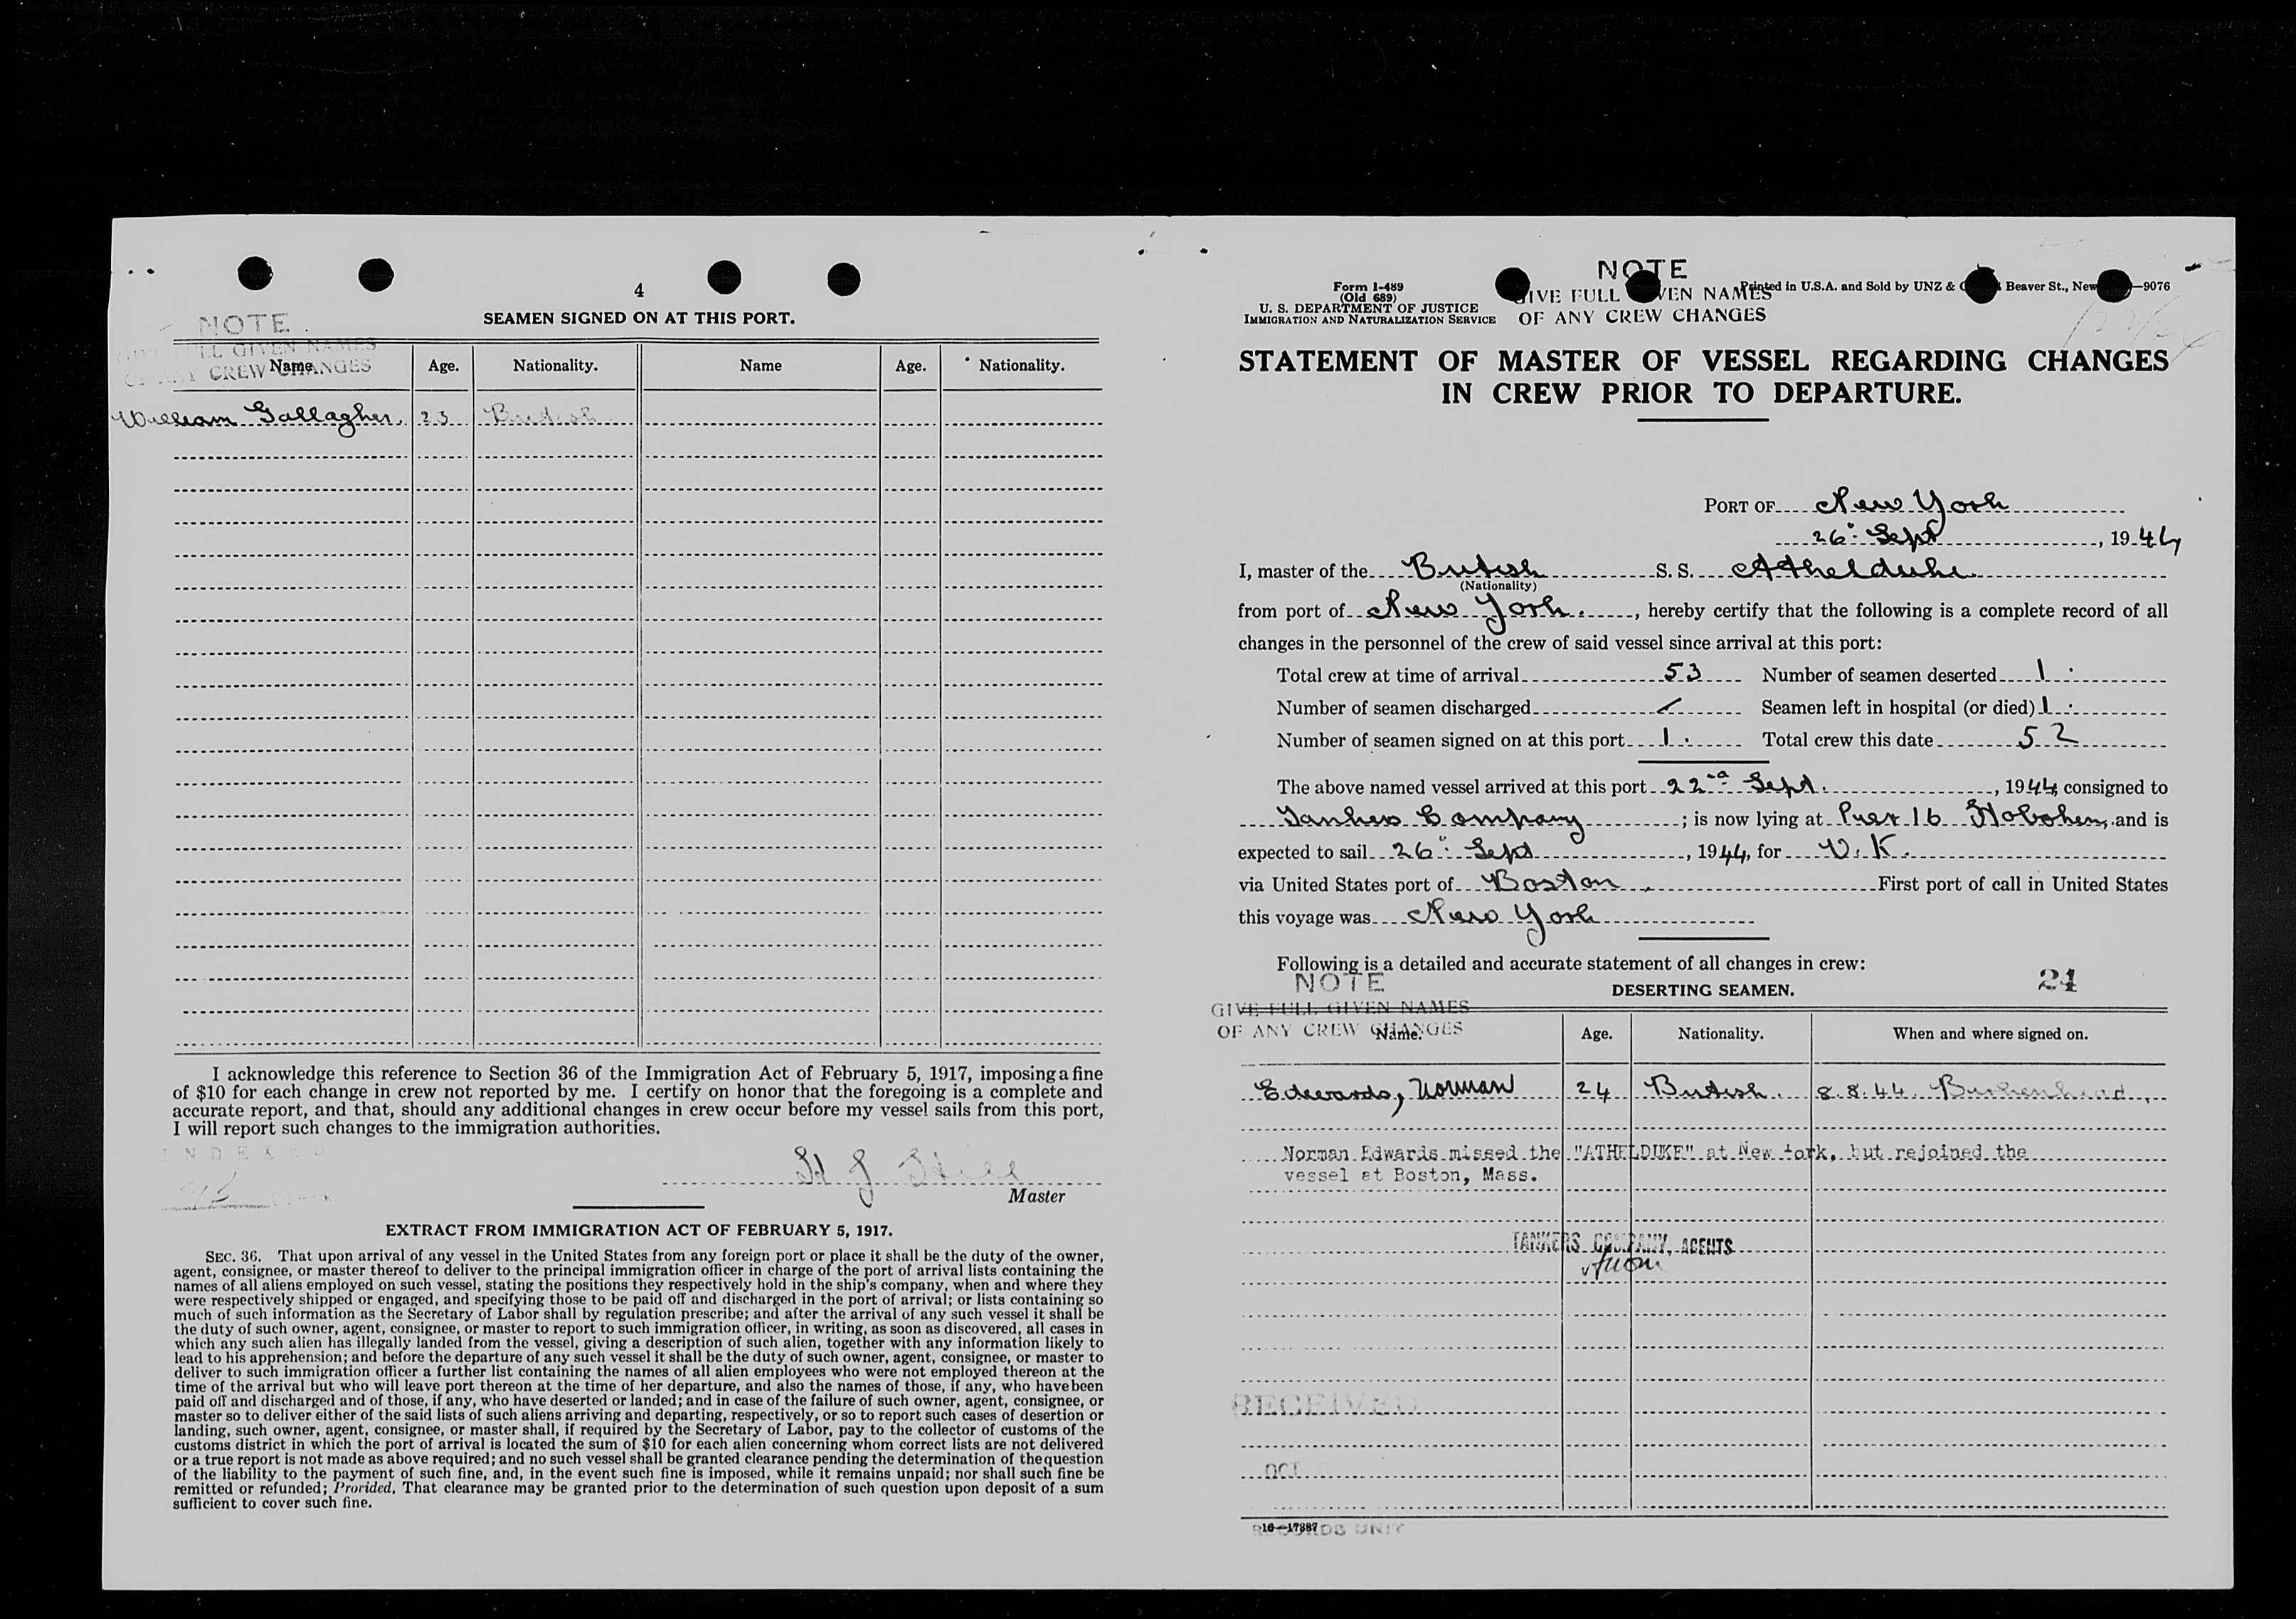 4
SEAMEN SIGNED ON AT THIS PORT.
NOTE
GIVE FULL GIVEN NAMES
OF ANY CREW CHANGES
Name Age. Nationality. Name Age. Nationality.
William Gallagher. 23 British
I acknowledge this reference to Section 36 of the Immigration Act of February 5, 1917, imposing a fine
of $10 for each change in crew not reported by me. I certify on honor that the foregoing is a complete and
accurate report, and that, should any additional changes in crew occur before my vessel sails from this port,
I will report such changes to the immigration authorities.
INDEXED
H J Hill
Master
EXTRACT FROM IMMIGRATION ACT OF FEBRUARY 5, 1917.
SEC. 36. That upon arrival of any vessel in the United States from any foreign port or place it shall be the duty of the owner,
agent, consignee, or master thereof to deliver to the principal immigration officer in charge of the port of arrival lists containing the
names of all aliens employed on such vessel, stating the positions they respectively hold in the ship's company, when and where they
were respectively shipped or engaged, and specifying those to be paid off and discharged in the port of arrival; or lists containing so
much of such information as the Secretary of Labor shall by regulation prescribe; and after the arrival of any such vessel it shall be
the duty of such owner, agent, consignee, or master to report to such immigration officer, in writing, as soon as discovered, all cases in
which any such alien has illegally landed from the vessel, giving a description of such alien, together with any information likely to
lead to his apprehension; and before the departure of any such vessel it shall be the duty of such owner, agent, consignee, or master to
deliver to such immigration officer a further list containing the names of all alien employees who were not employed thereon at the
time of the arrival but who will leave port thereon at the time of her departure, and also the names of those, if any, who have been
paid off and discharged and of those, if any, who have deserted or landed; and in case of the failure of such owner, agent, consignee, or
master so to deliver either of the said lists of such aliens arriving and departing, respectively, or so to report such cases of desertion or
landing, such owner, agent, consignee, or master shall, if required by the Secretary of Labor, pay to the collector of customs of the
customs district in which the port of arrival is located the sum of $10 for each alien concerning whom correct lists are not delivered
or a true report is not made as above required; and no such vessel shall be granted clearance pending the determination of the question
of the liability to the payment of such fine, and, in the event such fine is imposed, while it remains unpaid; nor shall such fine be
remitted or refunded; Provided, That clearance may be granted prior to the determination of such question upon deposit of a sum
sufficient to cover such fine.
Form I-489
(Old 689)
U. S. DEPARTMENT OF JUSTICE
IMMIGRATION AND NATURALIZATION SERVICE
NOTE
GIVE FULL GIVEN NAMES
OF ANY CREW CHANGES
Printed in U.S.A. and Sold by UNZ & Beaver St., New —9076
STATEMENT OF MASTER OF VESSEL REGARDING CHANGES
IN CREW PRIOR TO DEPARTURE.
PORT OF New York
26" Sept, 1944
I, master of the British S. S. Athelduke
(Nationality)
from port of New York., hereby certify that the following is a complete record of all
changes in the personnel of the crew of said vessel since arrival at this port:
Total crew at time of arrival 53 Number of seamen deserted 1
Number of seamen discharged / Seamen left in hospital (or died) 1
Number of seamen signed on at this port 1. Total crew this date 52
The above named vessel arrived at this port 22nd Sept., 1944, consigned to
Tankers Company; is now lying at Pier 16 Hoboken, and is
expected to sail 26" Sept, 1944, for U.K.
via United States port of Boston. First port of call in United States
this voyage was New York
Following is a detailed and accurate statement of all changes in crew:
24
DESERTING SEAMEN.
NOTE
GIVE FULL GIVEN NAMES
OF ANY CREW CHANGES
Name. Age. Nationality. When and where signed on.
Edwards, Norman 24 British. 8.8.44. Birkenhead.
Norman Edwards missed the "ATHELDUKE" at New York, but rejoined the
vessel at Boston, Mass.
TANKERS COMPANY, AGENTS
RECEIVED
OCT
16—17887
RECORDS UNIT